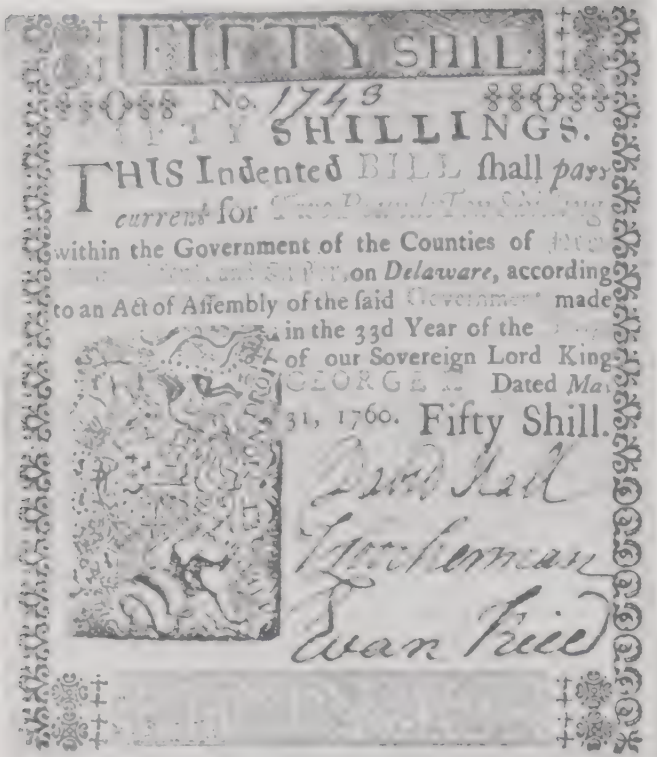 FIFTY SHIL.
No. 1743
FIFTY SHILLINGS.
THIS Indented BILL ſhall paſs
current for Two Pounds Ten Shillings
within the Government of the Counties of
on Delaware, according
to an Act of Aſſembly of the ſaid Government made
in the 33d Year of the
of our Sovereign Lord King
GEORGE Dated May
31, 1760. Fifty Shill.
David Hall
Evan Rice